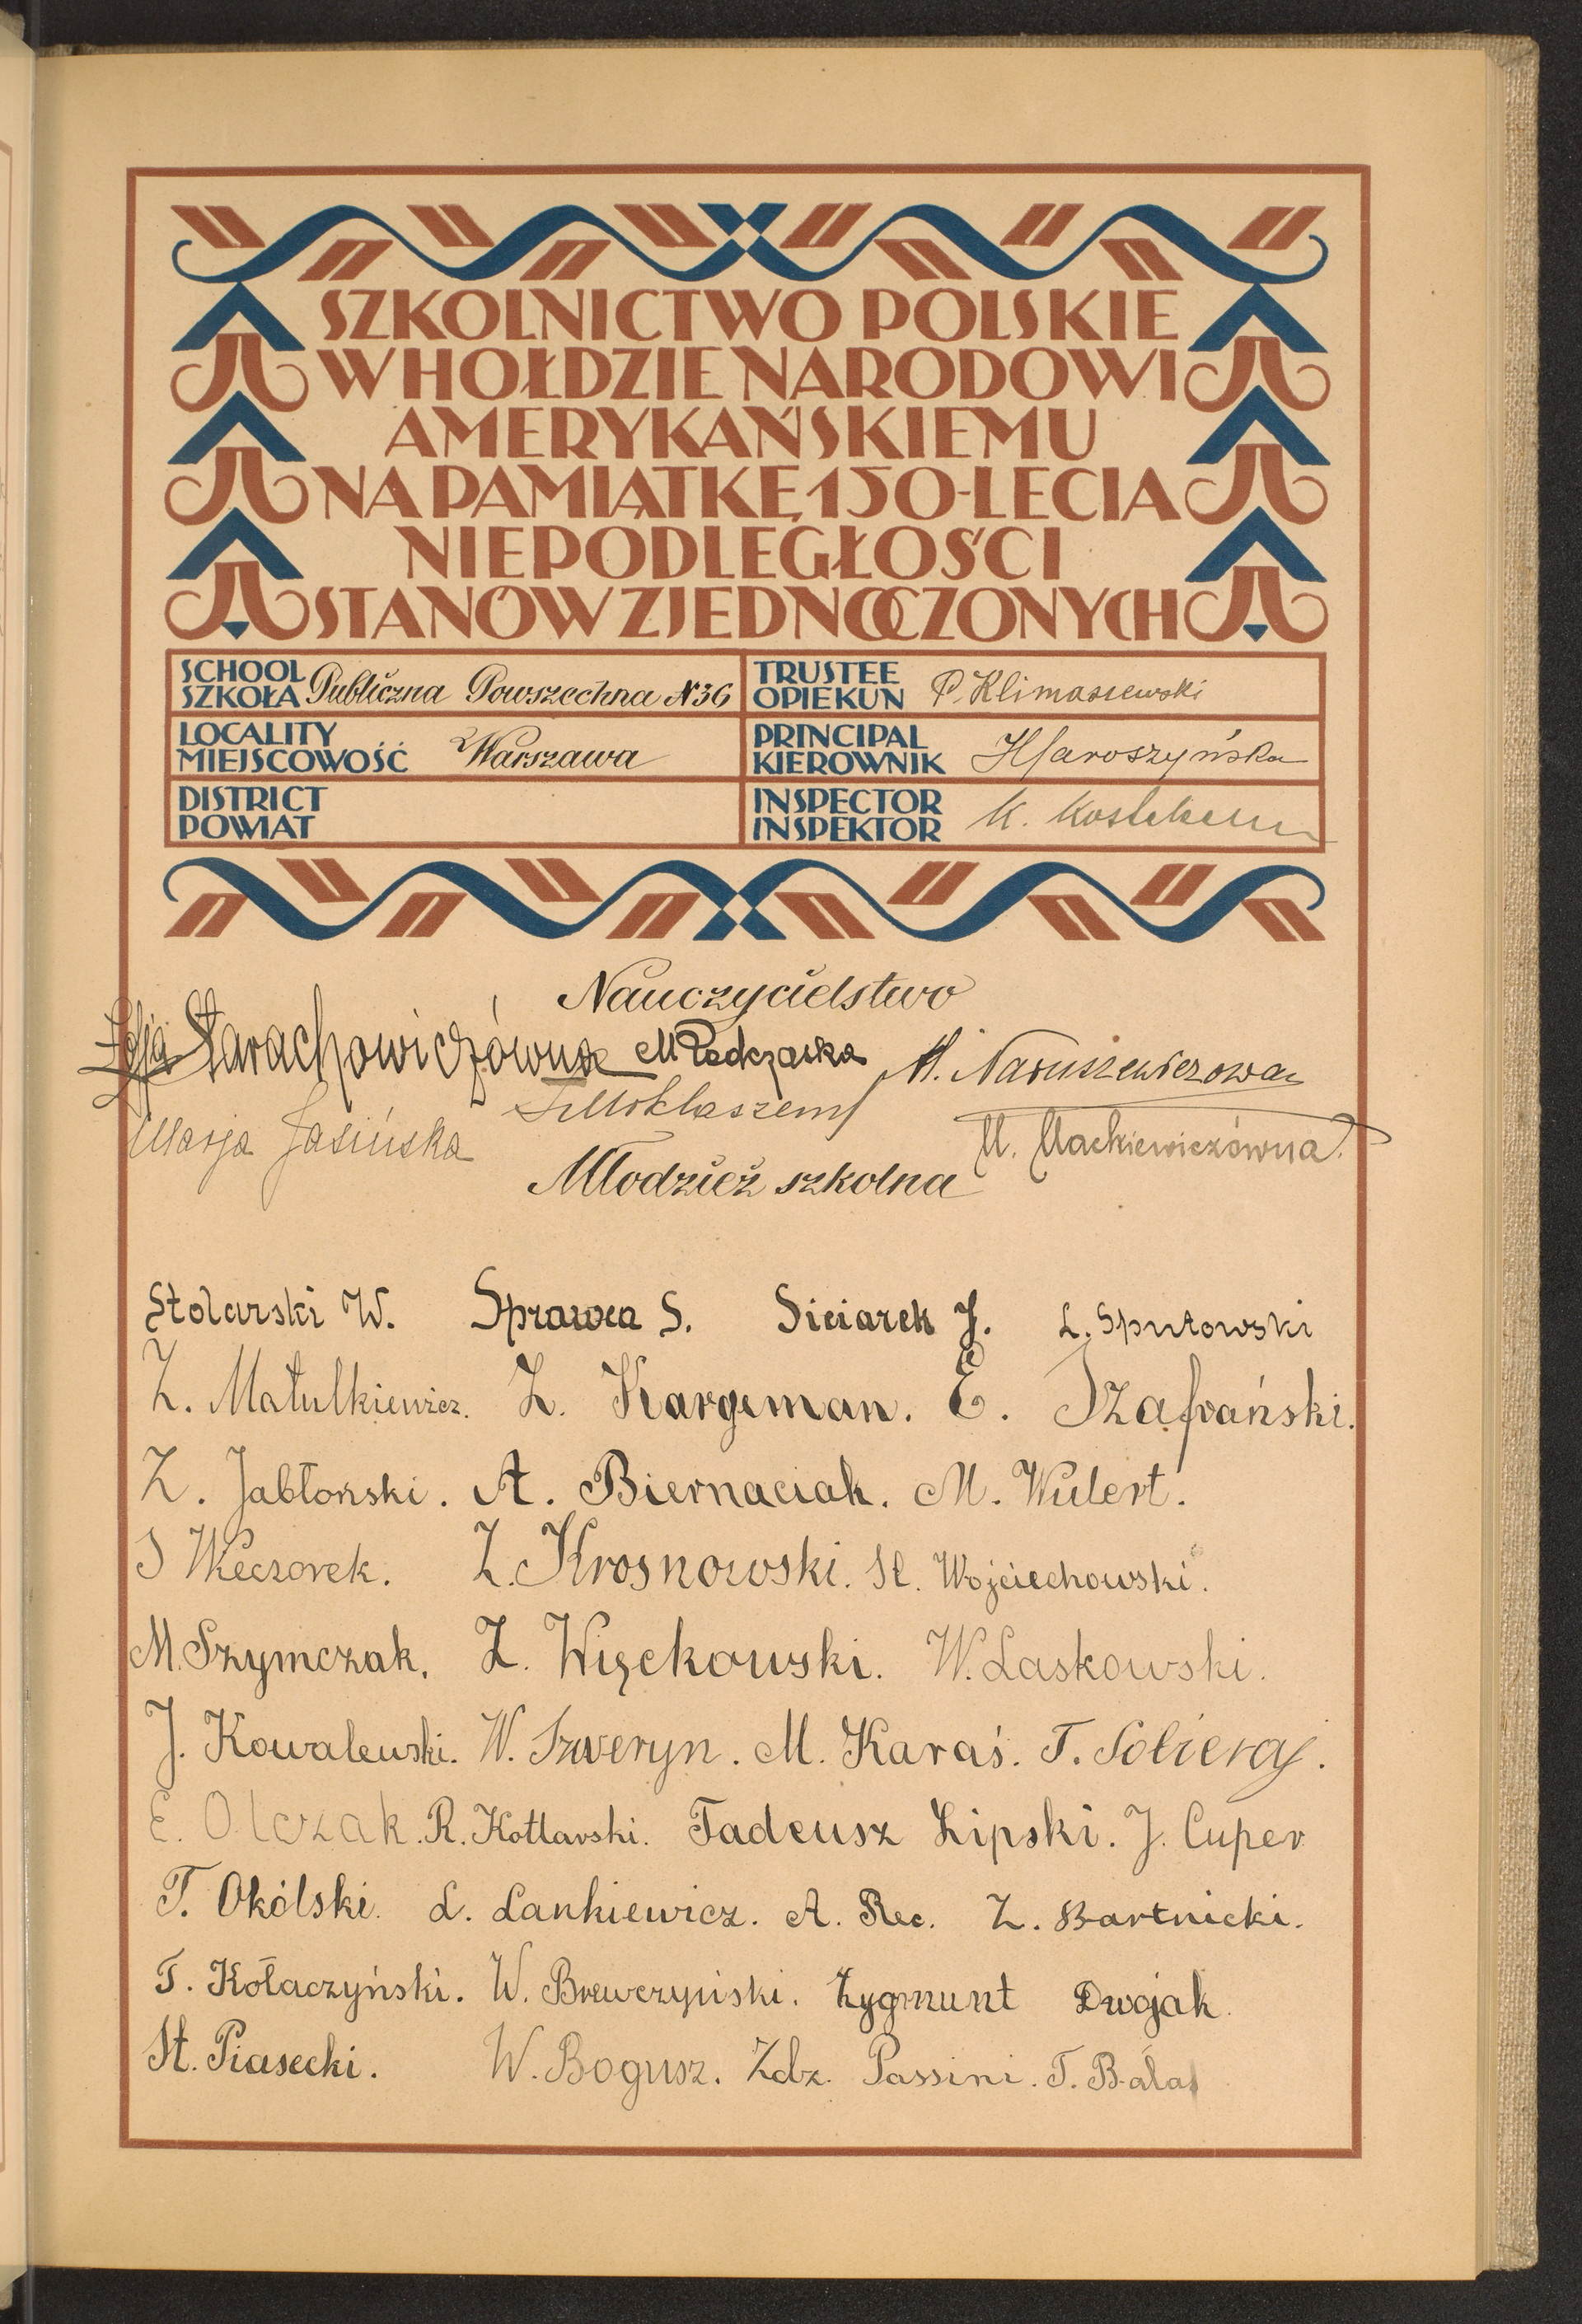 SZKOLNICTWO POLSKIE
W HOŁDZIE NARODOWI
AMERYKAŃSKIEMU
NA PAMIĄTKĘ 150-LECIA
NIEPODLEGŁOŚCI
STANÓW ZJEDNOCZONYCH
SCHOOL
SZKOŁA Publiczna Powszechna N36
TRUSTEE
OPIEKUN P. Klimaszewski
LOCALITY
MIEJSCOWOŚĆ Warszawa
PRINCIPAL
KIEROWNIK H Jaroszyńska
DISTRICT
POWIAT
INSPECTOR
INSPEKTOR K.
Nauczycielstwo
Zofja Starachowiczówna M Podczaska M. Naruszewiczowa
Marja Jasińska M. Mackiewiczówna
Młodzież szkolna
Stolarski W. Sprawca S. Siciarek J. L. Sputowski
Z. Matulkiewicz. Z. Kargeman. E. Szafrański.
Z. Jabłoński. A. Biernaciak. M. Wulert.
J Wieczorek. Z. Krosnowski. St. Wojciechowski.
M. Szymczak. Z. Więckowski. W. Laskowski.
J. Kowalewski. W. Szweryn. M. Karaś. T. Sobieraj.
E. Olczak. R. Kotlarski. Tadeusz Lipski. J. Cuper
T. Okólski. L. Lankiewicz. A. Rec. Z. Bartnicki.
T. Kołaczyński. W. Brewczyński. Zygmunt Dwojak.
St. Piasecki. W. Bogusz. Zdz. Passini. T. Bałał